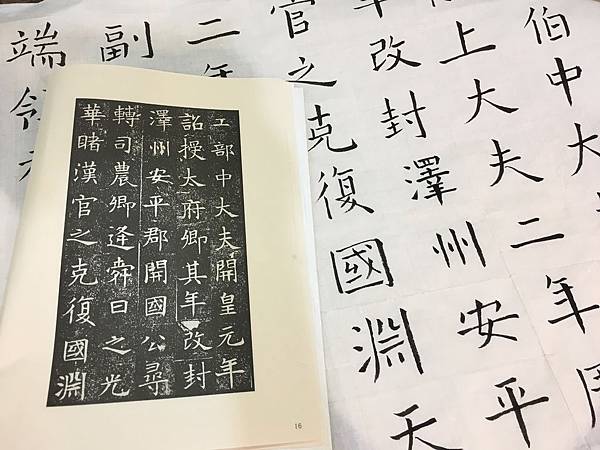 伯中大
上大夫二年
年改封澤州安平
官之克復國淵天
二年
副
端
工部中大夫開皇元年
詔授太府卿其年改封
澤州安平郡開國公尋
轉司農卿逢舜日之光
華睹漢官之克復國淵
16